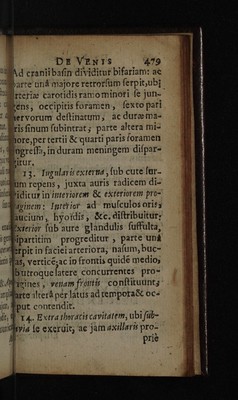 DE VENIS 479
Ad cranii basin dividitur bifariam: ac
parte unâ majore retrorsum serpit, ubi
arteriæ carotidis ramo minori se jun-
gens, occipitis foramen, sexto pari
nervorum destinatum, ac duræ ma-
ris sinum subintrat; parte altera mi-
nore, per tertii & quarti paris foramen
ingressâ, in duram meningem dispar-
gitur.
13. Iugularis externa, sub cute sur-
sum repens, juxta auris radicem di-
viditur in interiorem & exteriorem pro-
paginem: Interior ad musculos oris,
faucium, hyoidis, &c. distribuitur;
Exterior sub aure glandulis suffulta,
bipartitim progreditur, parte unâ
serpit in faciei arteriora, nasum, buc-
cas, verticê; ac in frontis quidê medio,
b utroque latere concurrentes pro-
pagines, venam frontis constituunt;
parte alterâ per latus ad tempora & oc-
put contendit.
14. Extra thoracis cavitatem, ubi sub-
clavia se exeruit, ac jam axillaris pro-
priè